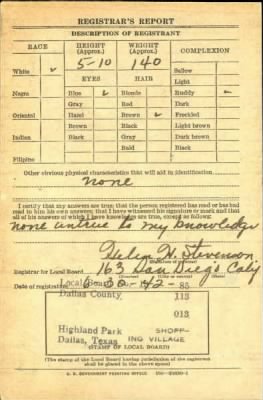 REGISTRAR'S REPORT
DESCRIPTION OF REGISTRANT
RACE HEIGHT (Approx.) WEIGHT (Approx.) COMPLEXION
5-10 140
White ✓ Sallow
EYES HAIR Light
Negro Blue ✓ Blonde Ruddy ✓
Gray Red Dark
Oriental Hazel Brown ✓ Freckled
Brown Black Light brown
Indian Black Gray Dark brown
Bald Black
Filipino
Other obvious physical characteristics that will aid in identification
none
I certify that my answers are true; that the person registered has read or has had
read to him his own answers; that I have witnessed his signature or mark and that
all of his answers of which I have knowledge are true, except as follows:
none untrue to my knowledge
Helen H. Stevenson
Registrar for Local Board 163 San Diego Calif
Date of registration 6-30-42
Local Board 85
Dallas County 113
013
Highland Park SHOPP-
Dallas, Texas ING VILLAGE
(STAMP OF LOCAL BOARD)
(The stamp of the Local Board having jurisdiction of the registrant
shall be placed in the above space)
U. S. GOVERNMENT PRINTING OFFICE